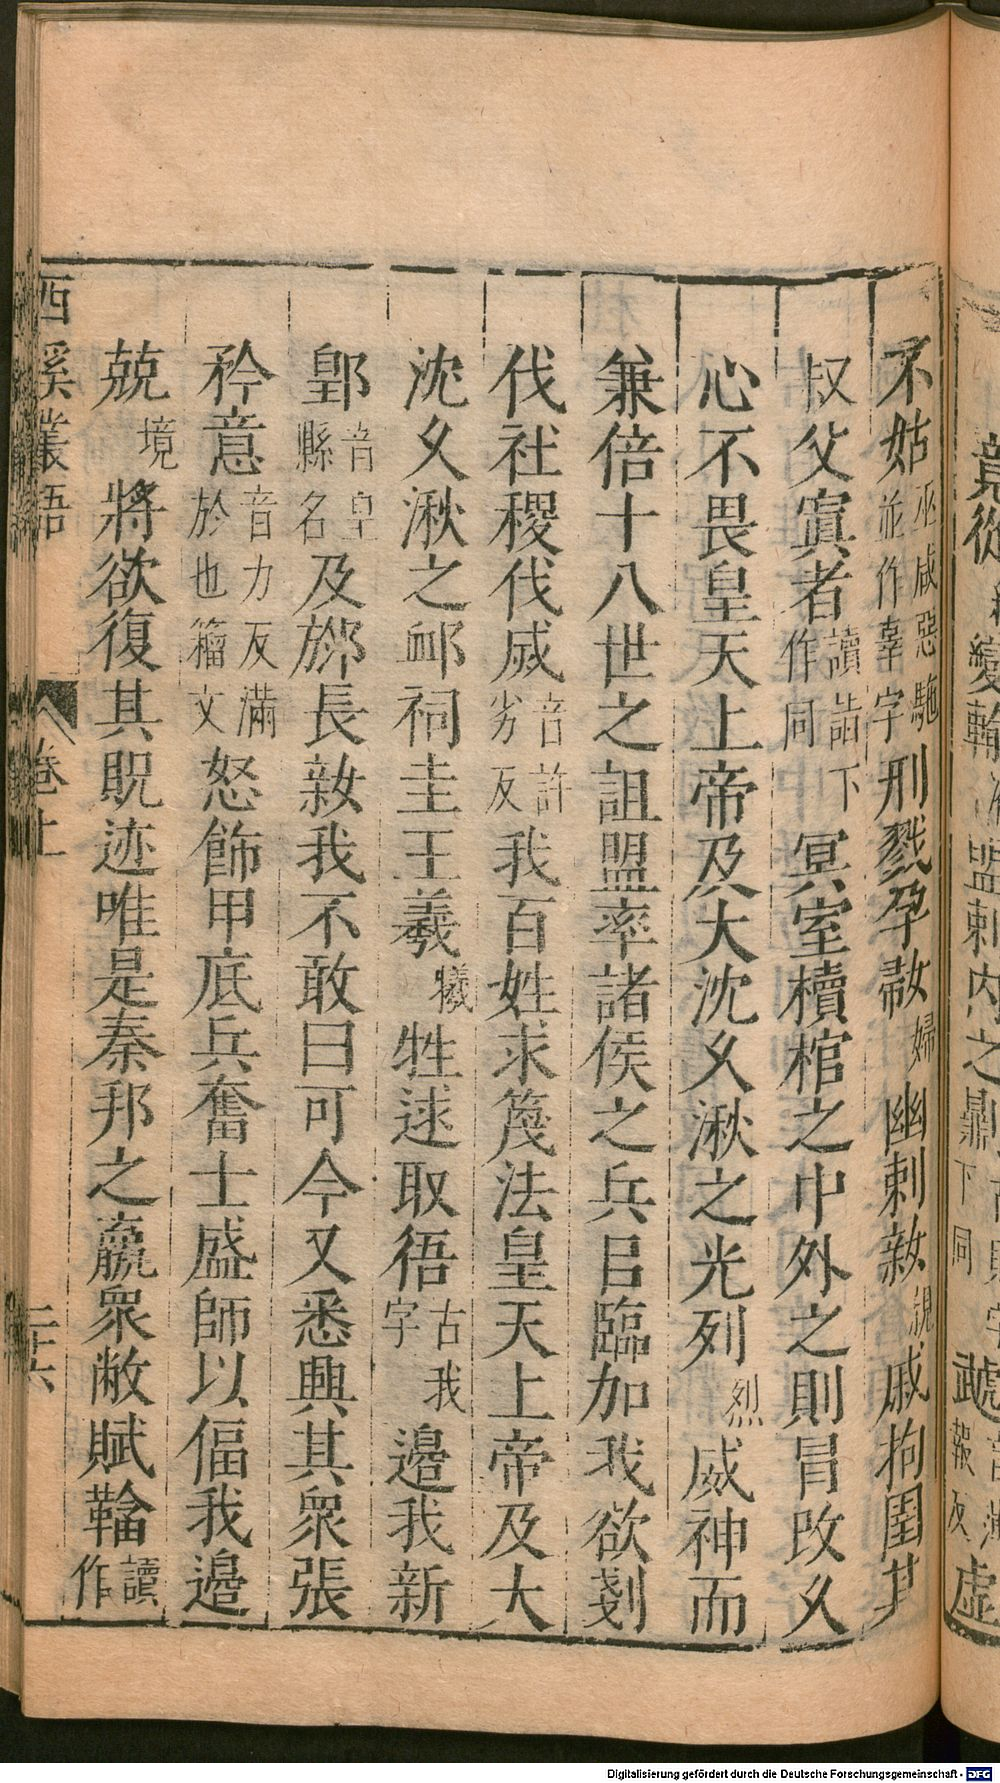 不姑巫咸惡馳並作辜字刑戮孕敹婦幽剌敹親戚拘圉其
叔父寘者讀諸下作同冥室櫝棺之中外之則冒改久
心不畏皇天上帝及大沈久湫之光列烈威神而
兼倍十八世之詛盟率諸侯之兵㠯臨加我欲剗
伐社稷伐烕音許劣反我百姓求篾法皇天上帝及大
沈久湫之卹祠圭玉羲犧牲逑取㣽古我字邊我新
郢音皇縣名及𨛭長敹我不敢曰可今又悉興其衆張
矜意音力反滿於也籀文怒飾甲底兵奮士盛師以偪我邊
兢境將欲復其貺迹唯是秦邦之羸衆敝賦鞈讀作
西溪叢語
卷上
二十六
竟從
變輸
盟剌内之
下同
報反
虛
Digitalisierung gefördert durch die Deutsche Forschungsgemeinschaft - DFG